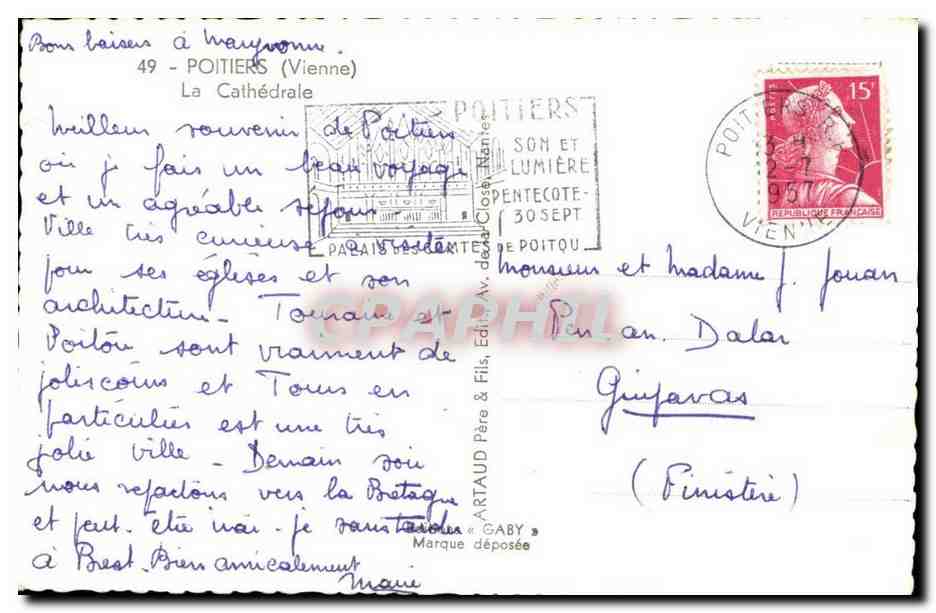 Bons baisers à Maryvonne.
49 - POITIERS (Vienne)
La Cathédrale
Meilleur souvenir de Poitiers
où je fais un beau voyage
et un agréable séjour -
Ville très curieuse à visiter
pour ses églises et son
architecture - Touraine et
Poitou sont vraiment de
jolis coins et Tours en
particulier est une très
jolie ville - Demain soir
nous repartons vers la Bretagne
et peut-être irai-je sans tarder
à Brest. Bien amicalement
Marie
POITIERS
SON ET
LUMIÈRE
PENTECOTE-
30 SEPT
PALAIS DES COMTES DE POITOU
ARTAUD Père & Fils, Edit., Av. de la Close, Nantes
« GABY »
Marque déposée
15F
POSTES
REPUBLIQUE FRANÇAISE
POITIERS
2-7
1957
VIENNE
Monsieur et Madame J. Jouan
Pen an Dalar
Guipavas
(Finistère)
CPAPHIL